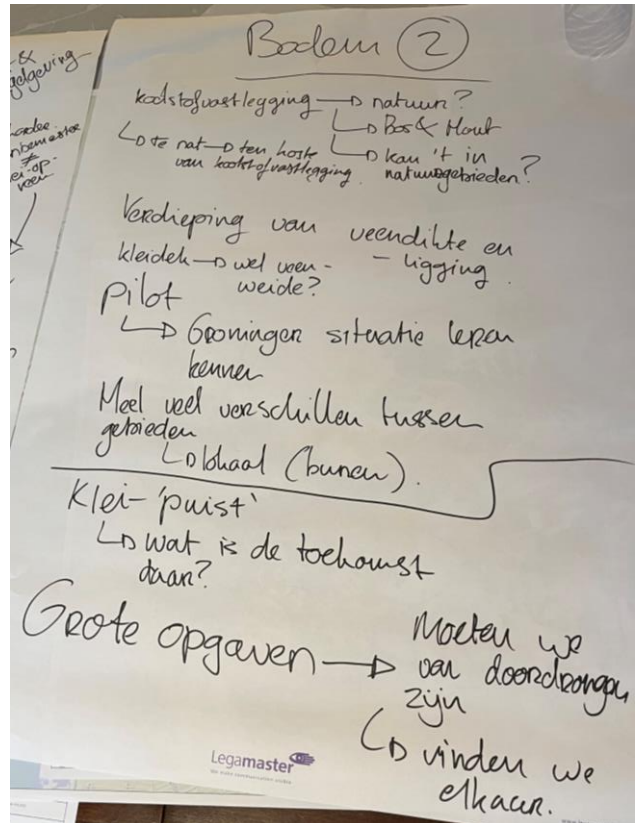 Bodem 2
koolstofvastlegging → natuur?
↳ Bos & Hout
↳ te nat → ten koste van koolstofvastlegging
↳ kan 't in natuurgebieden?
Verdieping van veendikte en
- ligging.
kleidek → wel veen-
weide?
Pilot
↳ Groningen situatie leren
kennen
Heel veel verschillen tussen
gebieden
↳ lokaal (buren).
Klei-'puist'
↳ wat is de toekomst
daar?
Grote opgaven → Moeten we
van doordrongen
zijn
↳ vinden we
elkaar.
Legamaster
&
gelgeving